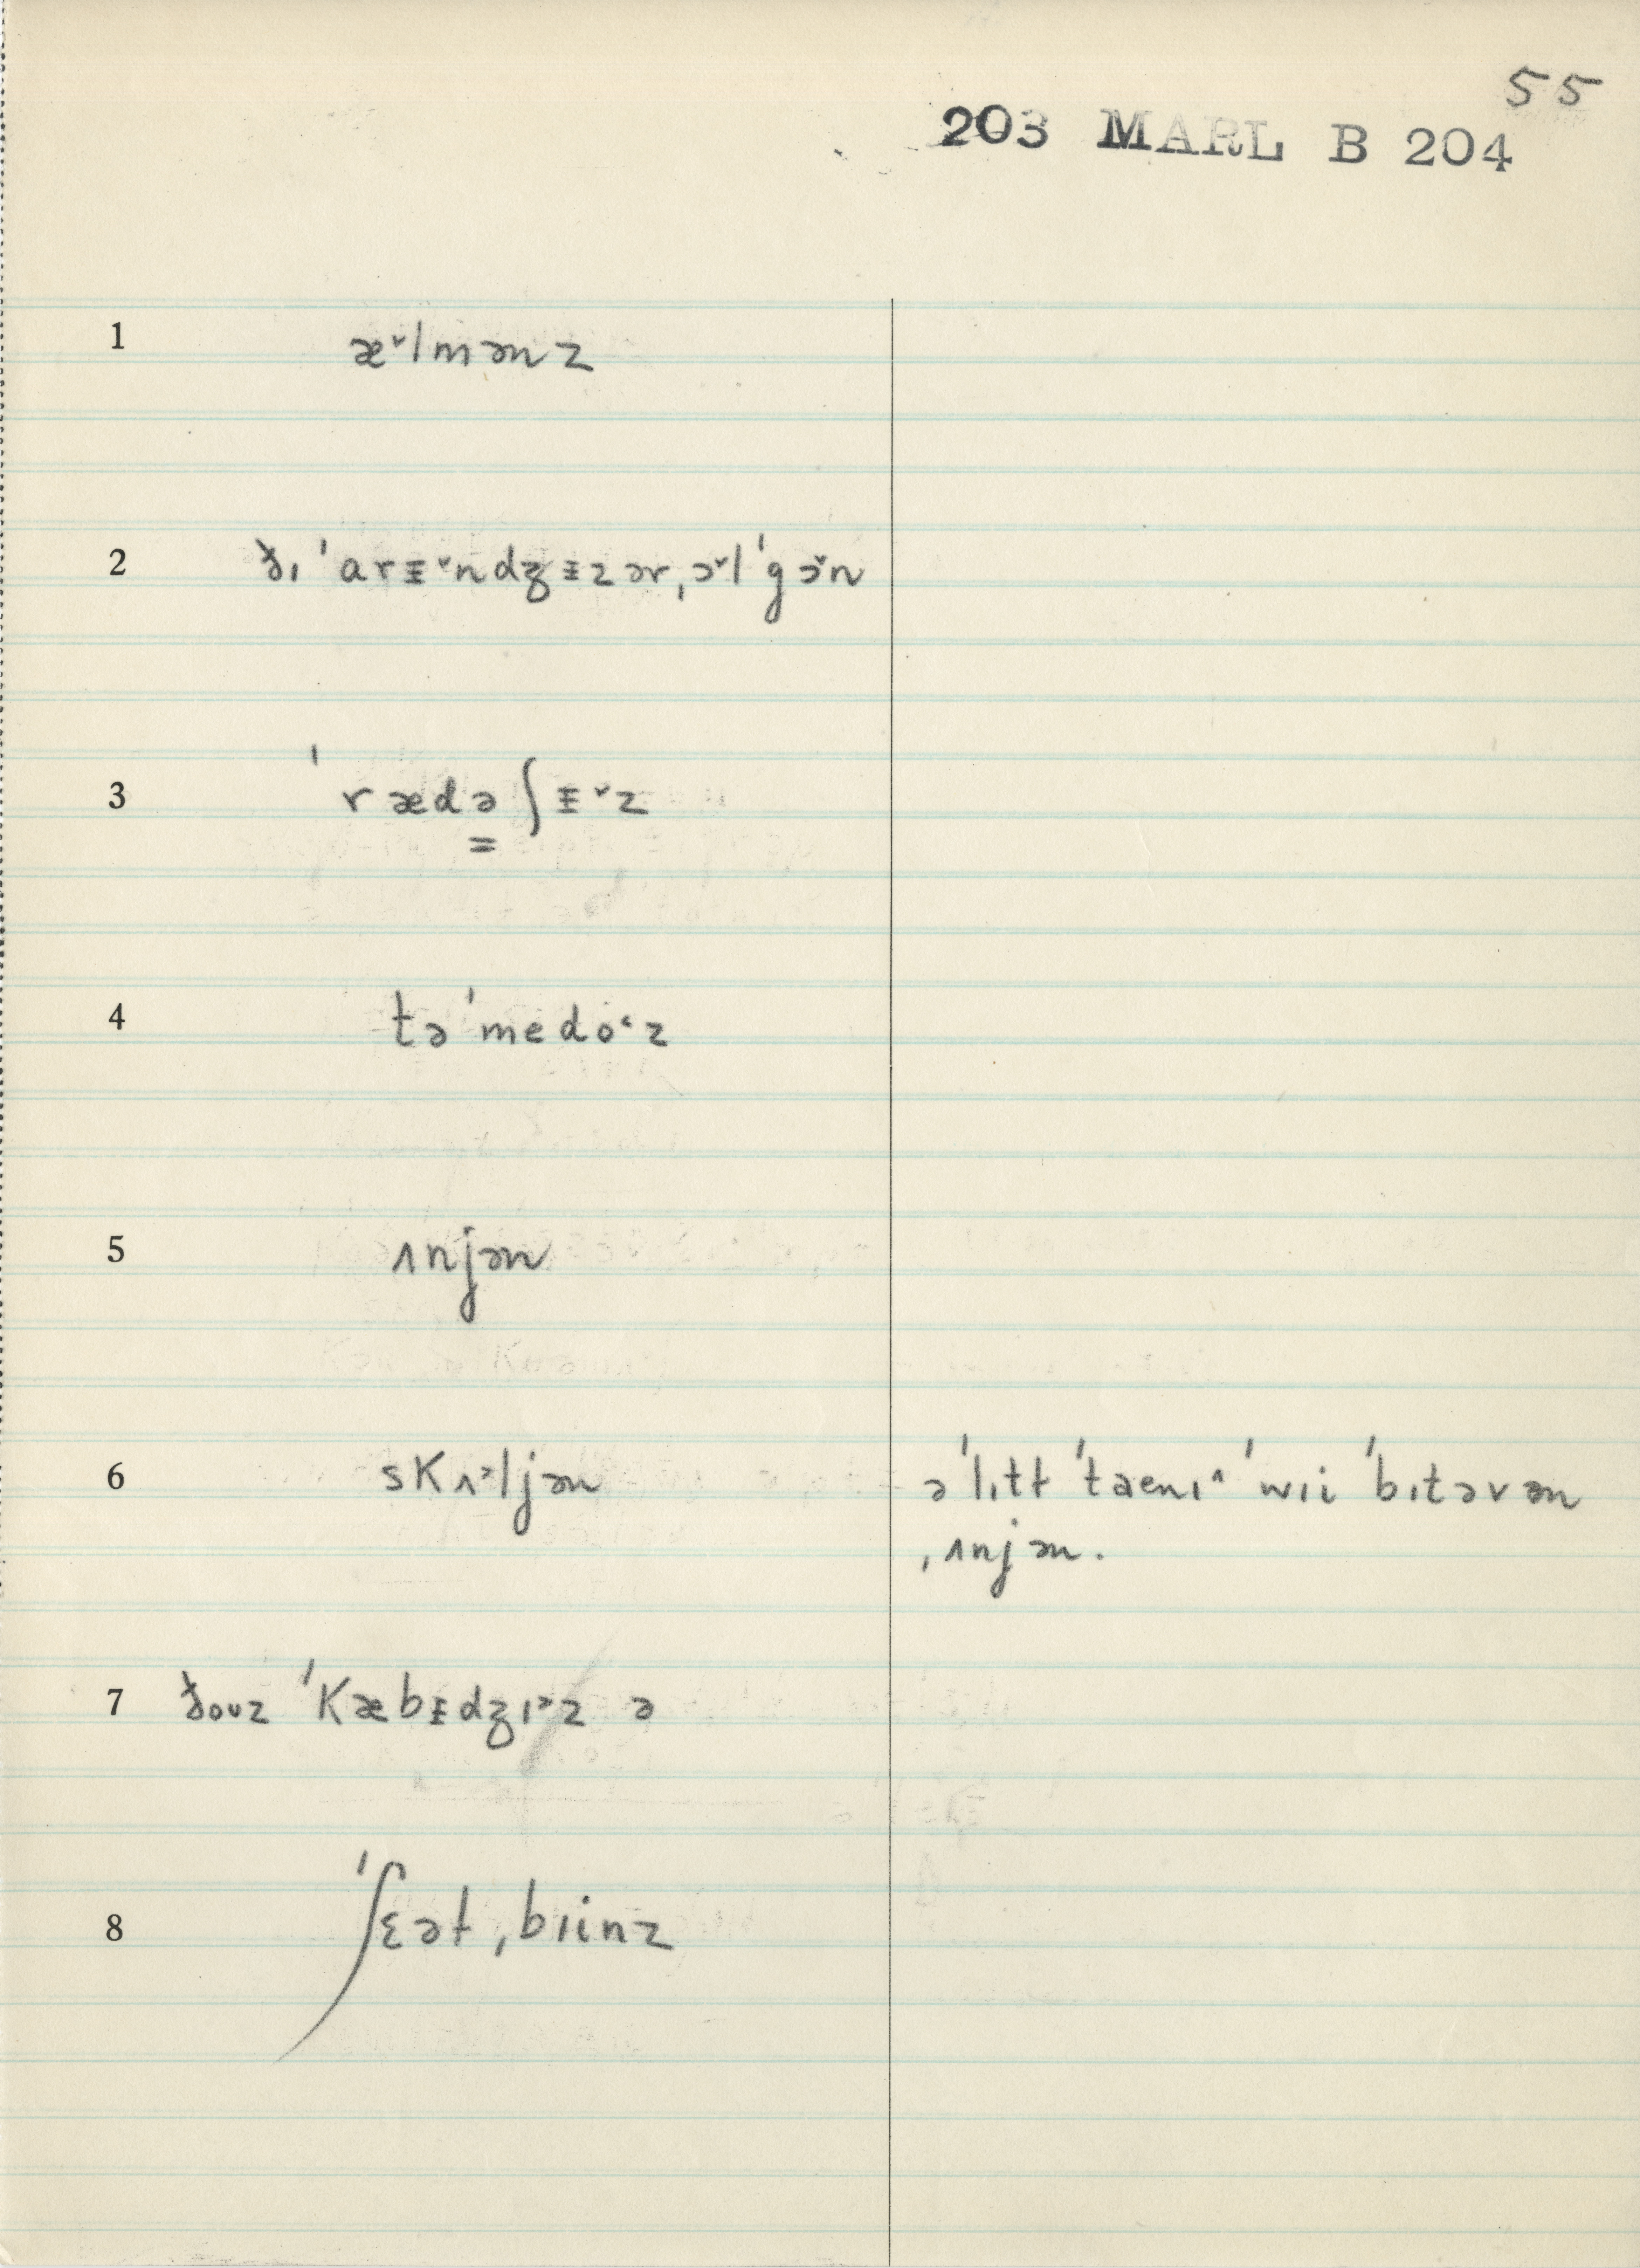 55
203 MARL B 204
1 æ˅lmənz
2 ðɪ ˈarᵻ˅ndʒᵻzər ˌɔ˅l ˈgɔ˅n
3 ˈrædə̳ʃᵻ˅z
4 təˈmedo˂z
5 ʌnjən
6 skʌ˃ljən əˈlɪtt ˈtaenɪ˄ ˈwɪi ˈbɪtəvən
ˌʌnjən.
7 ðoʊz ˈkæbᵻdʒɪ˃z ə
8 ˈʃɛət ˌbɪinz